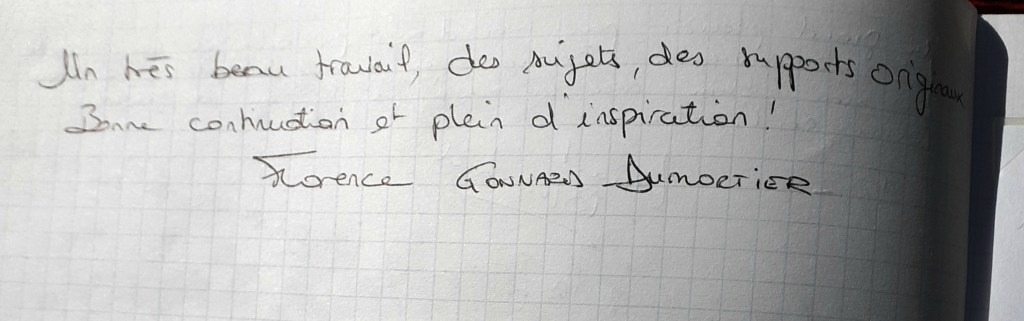 Un très beau travail, des sujets, des supports originaux
Bonne continuation et plein d'inspiration !
Florence GONNARD DUMORTIER